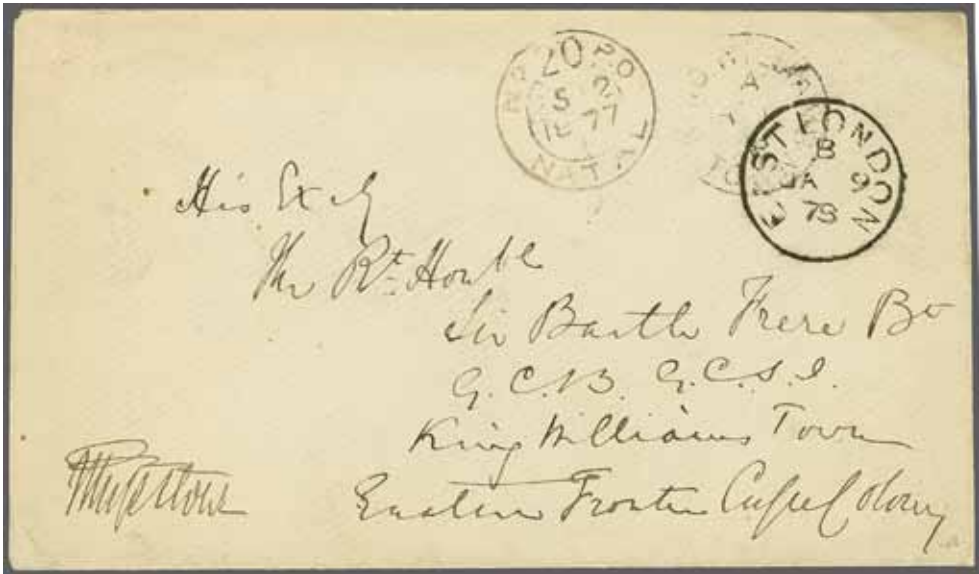 NPO 20 PO
S 2
1877
NATAL
A
EAST LONDON
B
JA 9
78
His Exly
The Rt Honble
Sir Bartle Frere Bt
G.C.B. G.C.S.I.
King Williams Town
Eastern Frontier Cape Colony